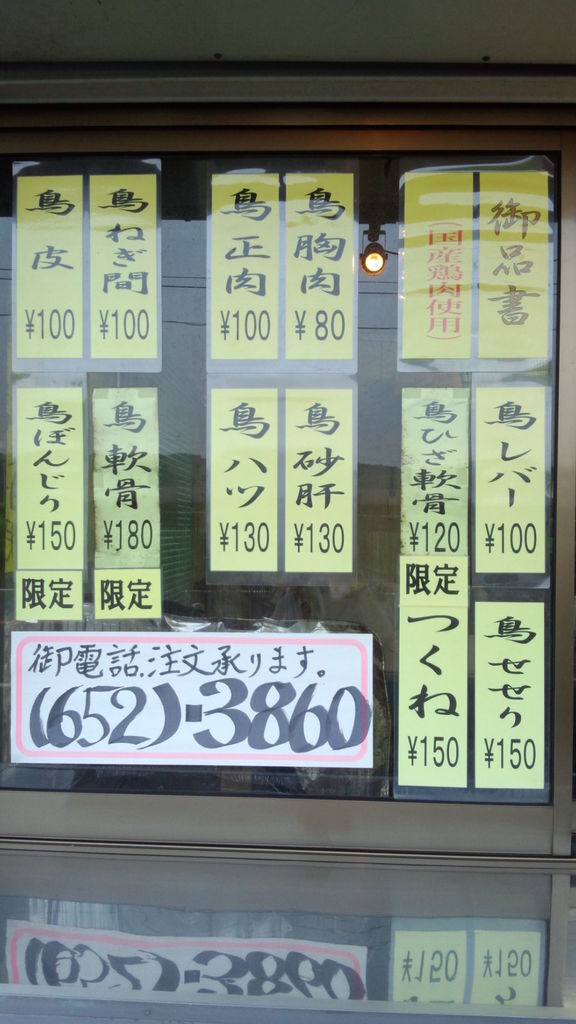 御品書
(国産鶏肉使用)
鳥胸肉
¥80
鳥正肉
¥100
鳥ねぎ間
¥100
鳥皮
¥100
鳥レバー
¥100
鳥ひざ軟骨
¥120
限定
鳥砂肝
¥130
鳥ハツ
¥130
鳥軟骨
¥180
限定
鳥ぼんじり
¥150
限定
鳥せせり
¥150
つくね
¥150
御電話注文承ります。
(652)-3860